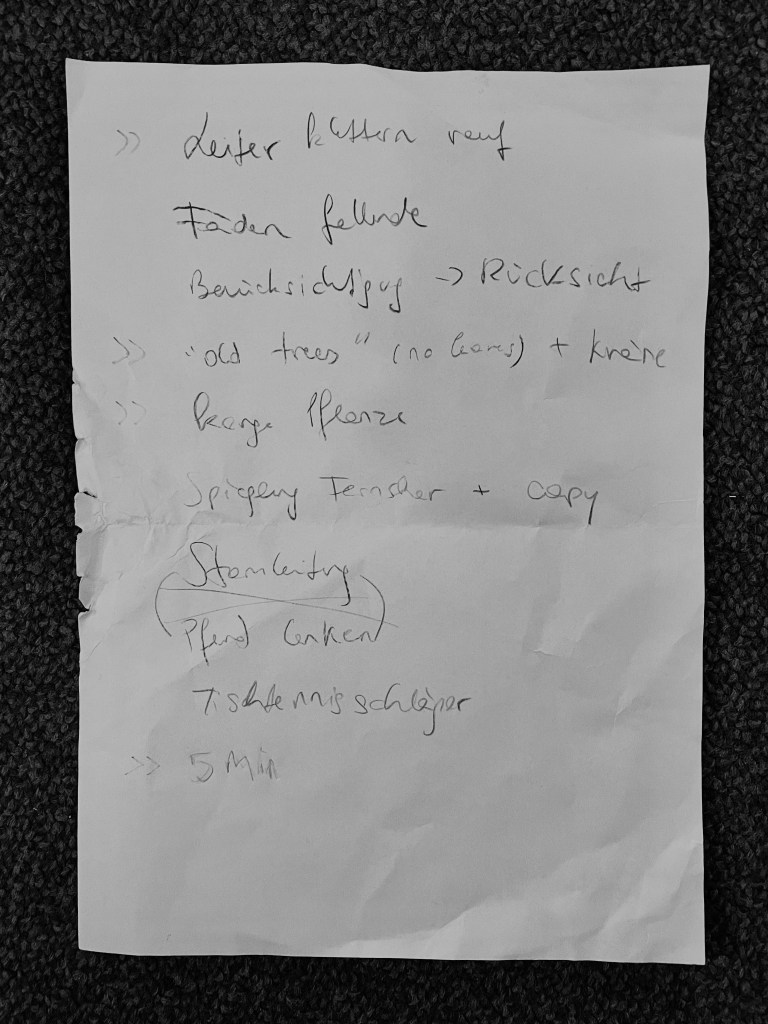 >> Leiter klettern rauf
Fäden fallende
Berücksichtigug -> Rücksicht
>> "old trees" (no leaves) + Kräne
>> Pflanze
Spiegelung Fernseher + copy
Stromleitung
Pferd lenken
Tischtennisschläger
>> 5 Min